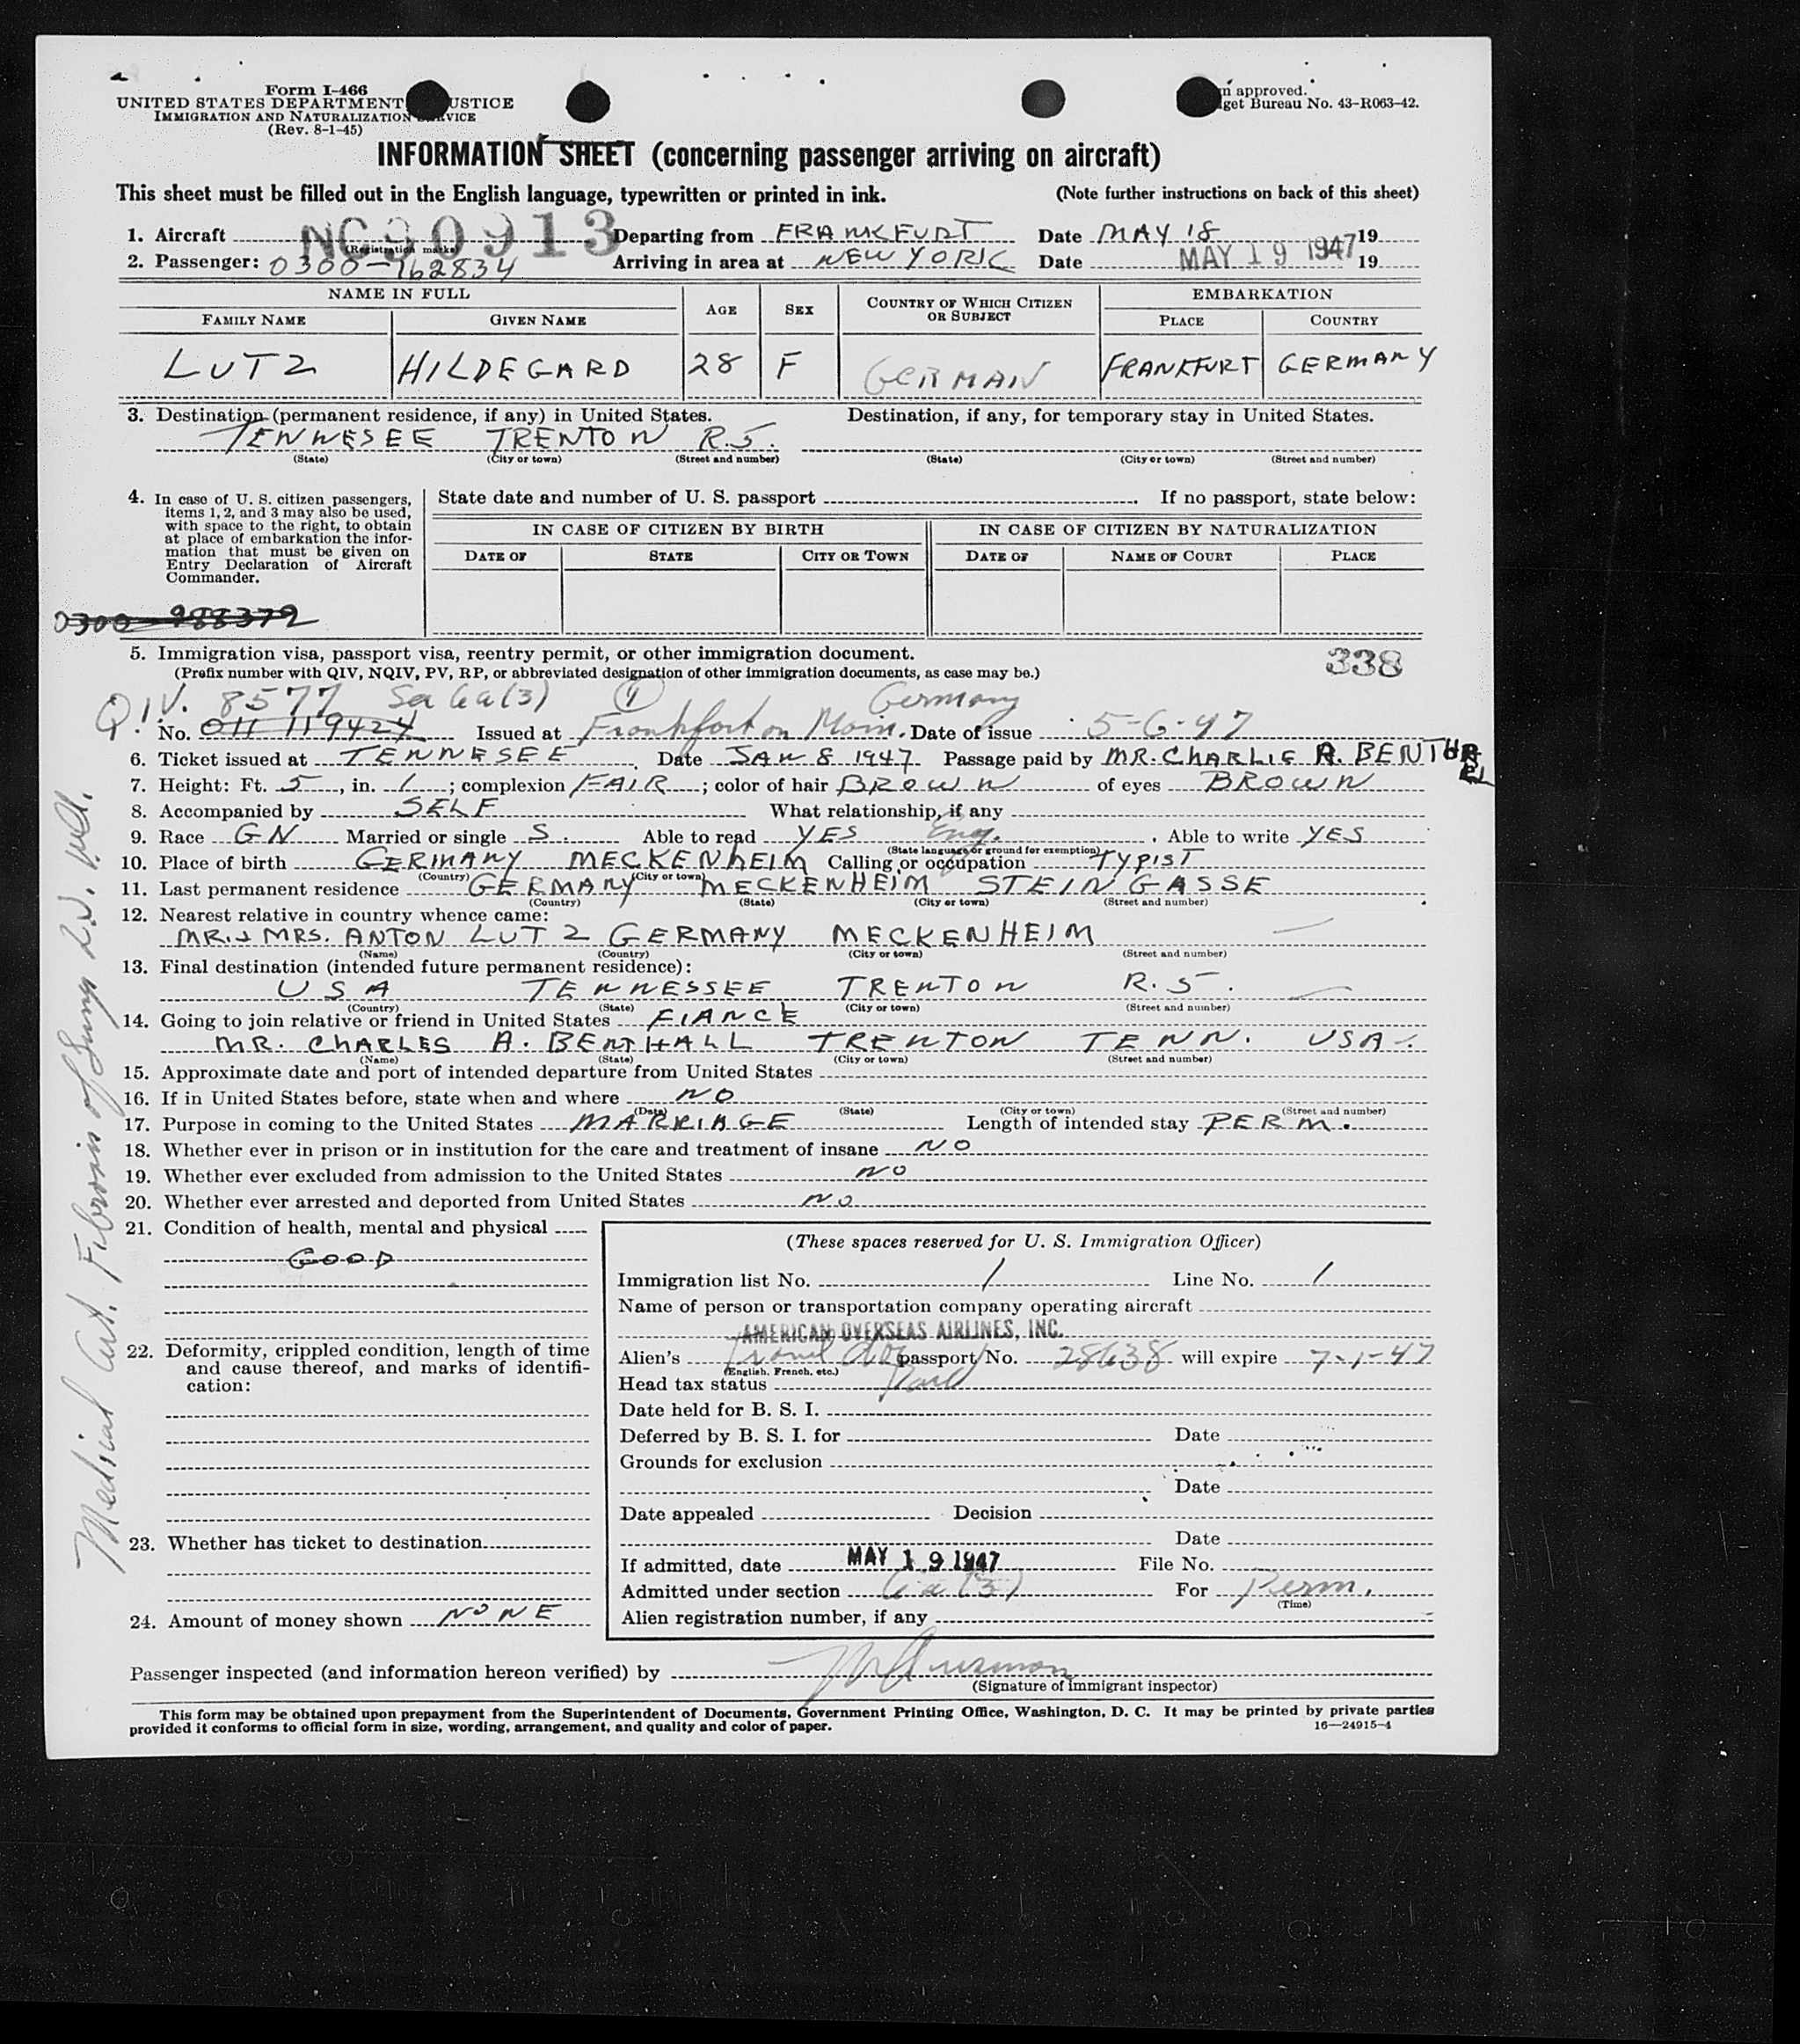 Form I-466
UNITED STATES DEPARTMENT USTICE
IMMIGRATION AND NATURALIZATION VICE
(Rev. 8-1-45)
approved.
get Bureau No. 43-R063-42.
INFORMATION SHEET (concerning passenger arriving on aircraft)
This sheet must be filled out in the English language, typewritten or printed in ink. (Note further instructions on back of this sheet)
1. Aircraft NC90913 (Registration marks) Departing from FRANKFURT Date MAY 18 19
2. Passenger: 0300-162834 Arriving in area at NEW YORK Date MAY 19 1947 19
NAME IN FULL AGE SEX COUNTRY OF WHICH CITIZEN OR SUBJECT EMBARKATION
FAMILY NAME GIVEN NAME PLACE COUNTRY
LUTZ HILDEGARD 28 F GERMAN FRANKFURT GERMANY
3. Destination (permanent residence, if any) in United States. Destination, if any, for temporary stay in United States.
TENNESEE TRENTON R.5.
(State) (City or town) (Street and number) (State) (City or town) (Street and number)
4. In case of U. S. citizen passengers, items 1, 2, and 3 may also be used, with space to the right, to obtain at place of embarkation the information that must be given on Entry Declaration of Aircraft Commander.
State date and number of U. S. passport . If no passport, state below:
IN CASE OF CITIZEN BY BIRTH IN CASE OF CITIZEN BY NATURALIZATION
DATE OF STATE CITY OR TOWN DATE OF NAME OF COURT PLACE
0300-988379
5. Immigration visa, passport visa, reentry permit, or other immigration document. 338
(Prefix number with QIV, NQIV, PV, RP, or abbreviated designation of other immigration documents, as case may be.)
QIV. 8577 Sec 6a(3) 1 Germany
No. 011 119424 Issued at Frankfort on Main. Date of issue 5-6-47
6. Ticket issued at TENNESEE Date JAN 8 1947 Passage paid by MR. CHARLIE A. BENTH
7. Height: Ft. 5, in. 1; complexion FAIR; color of hair BROWN of eyes BROWN
8. Accompanied by SELF What relationship, if any
9. Race GN Married or single S. Able to read YES Eng. . Able to write YES
(State language or ground for exemption)
10. Place of birth GERMANY MECKENHEIM Calling or occupation TYPIST
(Country) (City or town)
11. Last permanent residence GERMANY MECKENHEIM STEIN GASSE
(Country) (State) (City or town) (Street and number)
12. Nearest relative in country whence came:
MR. & MRS. ANTON LUTZ GERMANY MECKENHEIM
(Name) (Country) (City or town) (Street and number)
13. Final destination (intended future permanent residence):
USA TENNESSEE TRENTON R.5.
(Country) (State) (City or town) (Street and number)
14. Going to join relative or friend in United States FIANCE
MR. CHARLES A. BENTHALL TRENTON TENN. USA.
(Name) (State) (City or town) (Street and number)
15. Approximate date and port of intended departure from United States
16. If in United States before, state when and where NO
(Date) (State) (City or town) (Street and number)
17. Purpose in coming to the United States MARRIAGE Length of intended stay PERM.
18. Whether ever in prison or in institution for the care and treatment of insane NO
19. Whether ever excluded from admission to the United States NO
20. Whether ever arrested and deported from United States NO
21. Condition of health, mental and physical
GOOD
22. Deformity, crippled condition, length of time and cause thereof, and marks of identification:
23. Whether has ticket to destination
24. Amount of money shown NONE
(These spaces reserved for U. S. Immigration Officer)
Immigration list No. 1 Line No. 1
Name of person or transportation company operating aircraft
AMERICAN OVERSEAS AIRLINES, INC.
Alien's Travel doc passport No. 28638 will expire 7-1-47
(English, French, etc.)
Head tax status Paid
Date held for B. S. I.
Deferred by B. S. I. for Date
Grounds for exclusion
Date
Date appealed Decision
Date
If admitted, date MAY 19 1947 File No.
Admitted under section 6a(3) For Perm.
(Time)
Alien registration number, if any
Passenger inspected (and information hereon verified) by
(Signature of immigrant inspector)
This form may be obtained upon prepayment from the Superintendent of Documents, Government Printing Office, Washington, D. C. It may be printed by private parties
provided it conforms to official form in size, wording, arrangement, and quality and color of paper. 16—24915-4
Medical Cert. Fibrosis of lungs